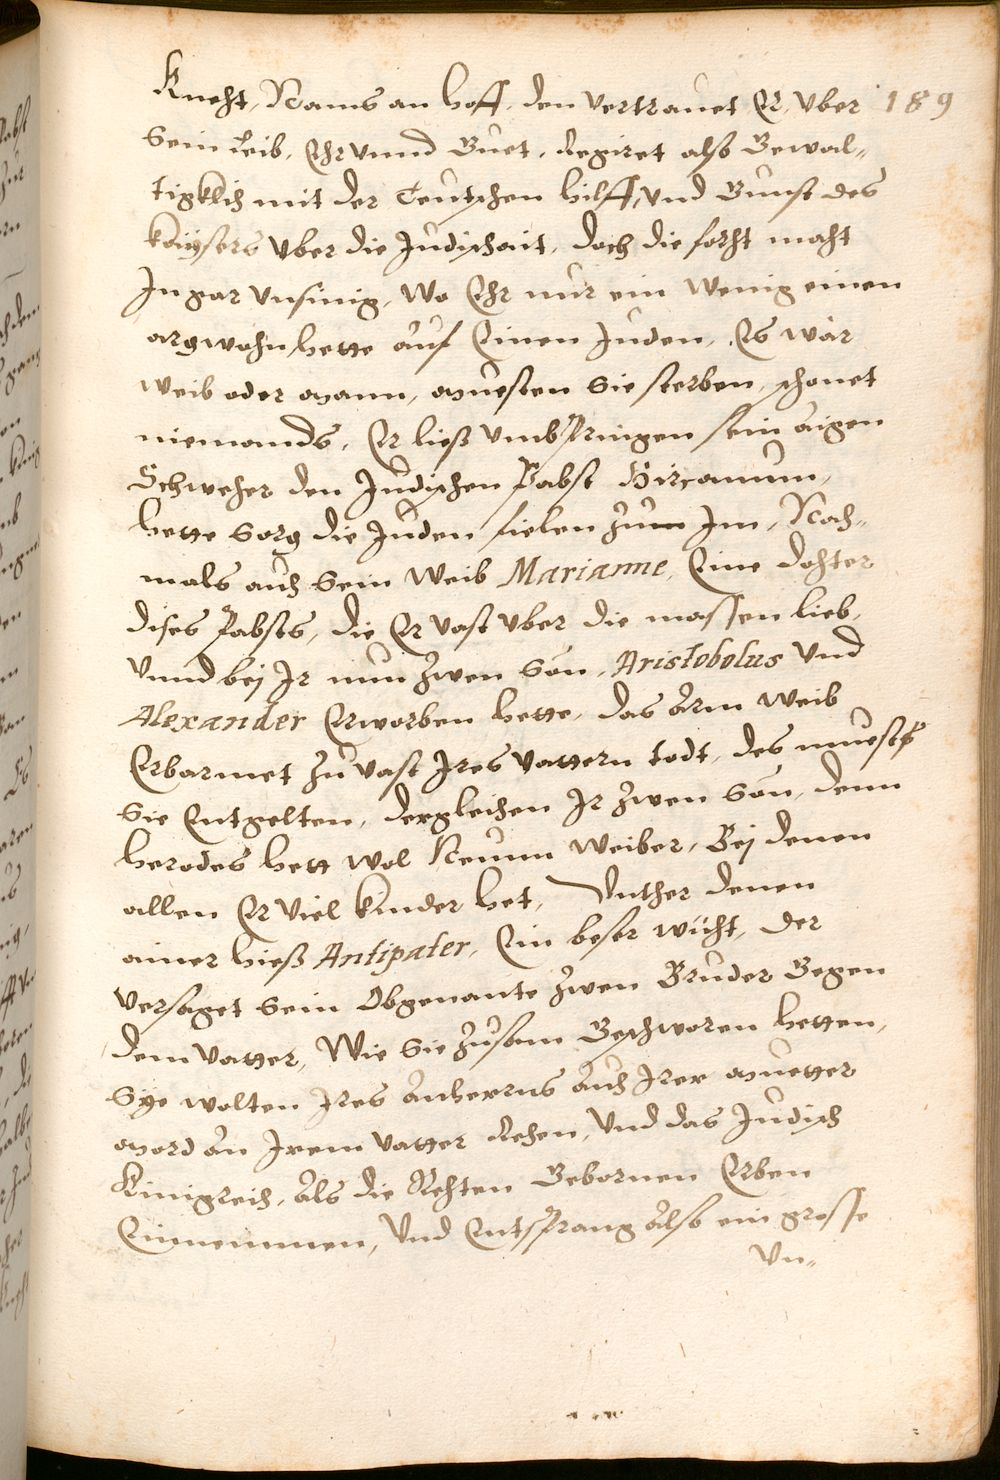 Kneht, Nams an hoff, den vertrauet Er, vber 189
Sein Leib, Ehr vnnd Guet, Regiret also Gewal-
tigklich mit der Teutschen hilff, vnd Gunst des
kaiisers vber die Judischait, doch die forht maht
In gar vnsinig, Wo Ehr nur ein wenig einen
argwohn hette auf Einen Juden, Es wär
weib oder mann, muesten Sie sterben, schonet
niemands, Er ließ vmbspringen sein aigen
Schweher den Judischen Pabst Hircanum,
hette Sorg die Juden fielen zum Im, Noch-
mals auch Sein Weib Marianne, Eine dohter
dises Pabsts, die Er vast vber die massen lieb,
Vnnd beij Ir nun zwen Sön, Aristobolus vnd
Alexander Erworben hette, das Arm weib
Erbarmet zu vast Ires vattern todt, des muest
Sie Entgelten, dergleichen Ir zwen Sön, denn
herodes hett wol Neunn weiber, Beij denen
allen Er viel kinder het, Vnther denen
ainer hieß Antipater, Ein beser wiht, der
versaget Sein Obgenante zwen Bruder Gegen
dem vatter, Wie Sie zusam Geschworen hetten,
Sye wolten Ires Anherrns Auch Irer muetter
mord an Irem vatter Rehen, vnd das Judisch
Kinigreich, Als die Rehten Gebornen Erben
Einnemmen, Vnd Entsprang Also ein grosse
Vn-